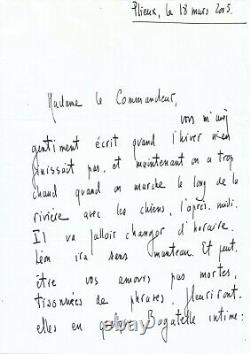 Plieux, le 18 mars 2005.
Madame le Commandeur,
vous m'avez
gentiment écrit quand l'hiver n'en
finissait pas, et maintenant on a trop
chaud quand on marche le long de la
rivière avec les chiens, l'après-midi.
Il va falloir changer d'horaire.
Léon ira sans manteau. Et peut-
être vos amours pas mortes,
tisonnées de phrases, fleuriront-
elles en quelque Bagatelle intime:
www.picclickwith.com